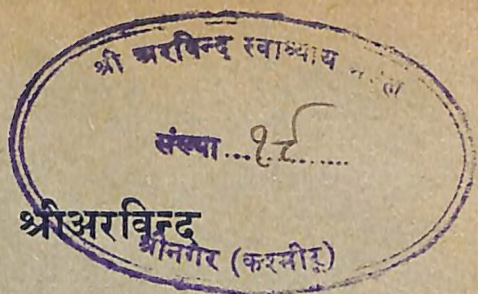 श्री अरविन्द स्वाध्याय
संख्या ... १८ ......
श्रीअरविन्द
श्रीनगर (कश्मीर)